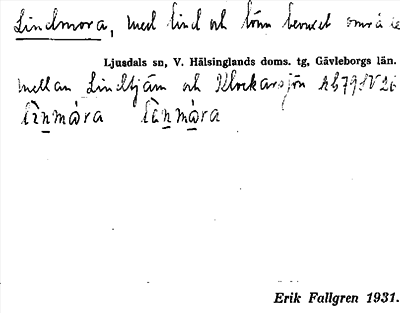 Lindmora, med lind och lönn bevuxet område
Ljusdals sn, V. Hälsinglands doms. tg, Gävleborgs län.
mellan Lindtjärn och Klockarsjön AB79SV26
Erik Fallgren 1931.